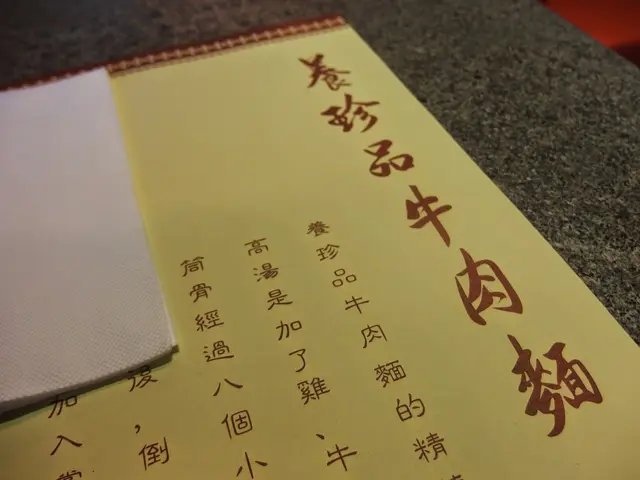 養珍品牛肉麵
養珍品牛肉麵的精
高湯是加了雞、牛
筒骨經過八個小
後,倒
加入